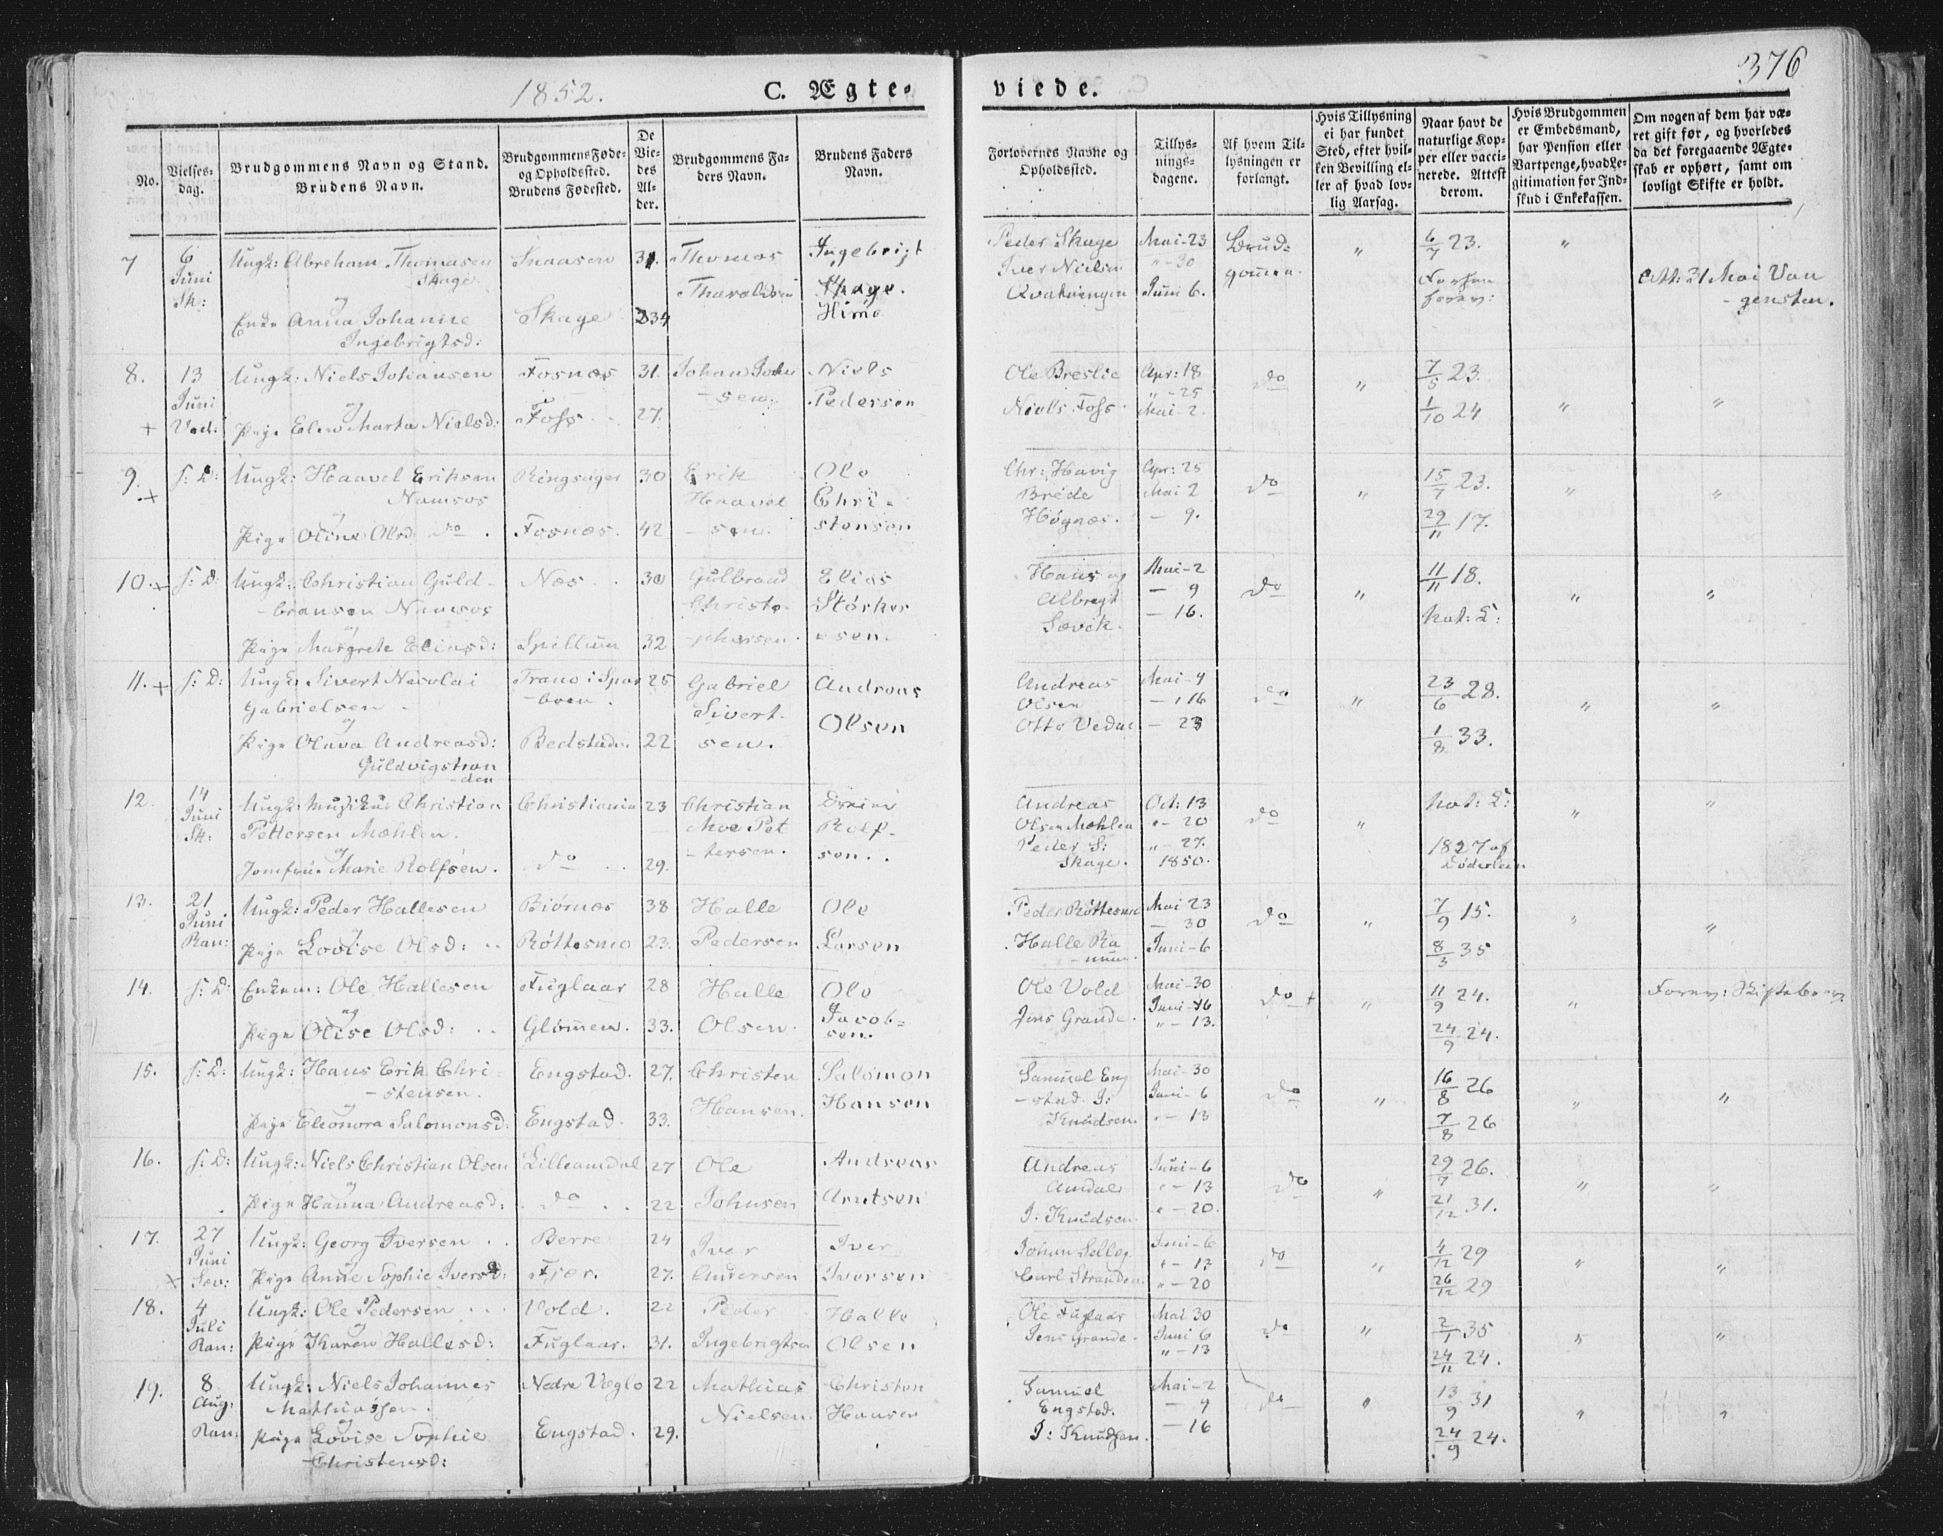 1852.
C. Ægte-
viede.
376
No.
Vielses-
dag.
Brudgommens Navn og Stand.
Brudens Navn.
Brudgommens Føde-
og Opholdssted.
Brudens Fødested.
De
Vie-
des
Al-
der.
Brudgommens Fa-
ders Navn.
Brudens Faders
Navn.
Forlovernes Navne og
Opholdssted.
Tillys-
nings-
dagene.
Af hvem Til-
lysningen er
forlangt.
Hvis Tillysning
ei har fundet
Sted, efter hvil-
ken Bevilling el-
ler af hvad lov-
lig Aarsag.
Naar havt de
naturlige Kop-
per eller vacci-
nerede. Attest
derom.
Hvis Brudgommen
er Embedsmand,
har Pension eller
Vartpenge, hvad Le-
gitimation for Ind-
skud i Enkekassen.
Om nogen af dem har væ-
ret gift før, og hvorledes
da det foregaaende Ægte-
skab er ophørt, samt om
lovligt Skifte er holdt.
7 6 Juni Sk: Ungk: Abraham Thomasen Skage Snaasen 31. Thomas Tharaldsen Ingebrigt Skage. Himo
og
Enke Anna Johanne Ingebrigtsd: Skage 34
Peder Skage Mai-23 Brud-
Iver Nielsen " -30 gommen.
Qvatningen Juni 6. " 6/7 23. "
Att: 31 Mai Van
gensten.
8. 13 Juni Ungk: Niels Johansen Fosnæs 31. Johan John
sen. Niels Pedersen
og
+ Pige Elen Marta Nielsd: Foss 27.
Ole Breslie Apr: 18 do " 7/5 23.
" -25
Niels Foss Mai-2. 1/10 24 " "
9. + S: D: Ungk: Haavel Eriksen Namsos Ringsager 30 Erik Haavel
sen. Ole Chri-
stensen
og
Pige Oline Olsd: do. Fosnæs. 42
Chr: Havig Apr: 25
Brede Mai 2 do " 15/7 23. " "
Høgnæs. - 9. 29/11 17.
10. + S: D: Ungk: Christian Guld-
bransen Namsos Næs 30 Gulbrand Christo-
phersen. Elias Størker
sen.
og
Pige Margrete Eliasd: Spillum 32
Hans og Mai-2 11/11 18.
Albregt - 9 do " " "
Sævik. - 16. nat: K:
11. + S: D: Ungk: Sivert Nicolai Gabrielsen Trano i Spar
boen. 25 Gabriel Sivert-
sen. Andreas Olsen
og
Pige Olava Andreasd: Guldvigstran
den Bedstade. 22
Andreas Mai-9
Olsen - 16 do " 23/6 28. " "
Otto Vedal - 23 1/8 33.
12. 14 Juni Sk: Ungk: Musikus Christian Pettersen Mæhlen. Christiania 23 Christian Moe Pet
tersen. Rolf-
sen.
og
Jomfru Marie Rolfsen. do 29.
Andreas Oct: 13 nat: K:
Olsen Mæhlen " - 20 do " " "
Peder S: " - 27. 1827 af
Skage. 1850. Døderlein
13. 21 Juni Ran: Ungk: Peder Hallesen Biørnæs 38 Halle Pedersen Ole Larsen
og
Pige Lovise Olsd: Røttesmo 23.
Peder Røttesmo Mai 23 do " 7/9 15. " "
- 30
Halle Ra
num. Juni-6 8/3 35
14. S: D: Enkem: Ole Hallesen Fuglaar 28 Halle Olsen. Ole Jacob-
sen.
og
Pige Olise Olsd: Glømmen. 33.
Ole Vold Mai-30 do + " 11/9 24. " Forev: Skiftebrev
Juni-6
Jens Grande. " - 13. 24/9 24.
15. S: D: Ungk: Hans Erik Chri
stensen. Engstad. 27. Christen Hansen. Salomon Hansen
og
Pige Eleonora Salomonsd: Engstad. 33.
Samuel Eng Mai-30
stad. J: Juni-6 do " 16/8 26 " "
Knudsen. " - 13 7/8 26
16. S: D: Ungk: Niels Christian Olsen Lilleamdal 27 Ole Johnsen Andreas Arntsen
og
Pige Hanna Andreasd: do 22
Andreas Juni-6 29/7 26.
Amdal " - 13 do " " "
J: Knudsen " - 20. 21/12 31.
17. 27 Juni Sæv: Ungk: Georg Iversen Berre 24 Iver Andersen Iver Iversen
og
+ Pige Anne Sophie Iversd: Fjær. 27.
Johan Selleg Juni-6 4/12 29
" - 13 do " " "
Carl Stranden " - 20 26/12 29
18. 4 Juli Ran: Ungk: Ole Pedersen Vold. 22 Peder Ingebrigtsen Halle Olsen
og
Pige Karen Hallesd: Fuglaar. 31.
Ole Fuglaar Mai 30 2/7 35
Jens Grande. Juni 6 do " " "
" - 13 24/11 24.
19. 8 Aug: Ran: Ungk: Niels Johannes Mathiassen. Nedre Væglo 22 Mathias Nielsen. Christen Hansen
og
Pige Lovise Sophie Christensd: Engstad. 29.
Samuel Mai-2 13/9 31
Engstad. - 9 do " " "
J: Knudsen. - 16 24/9 24.